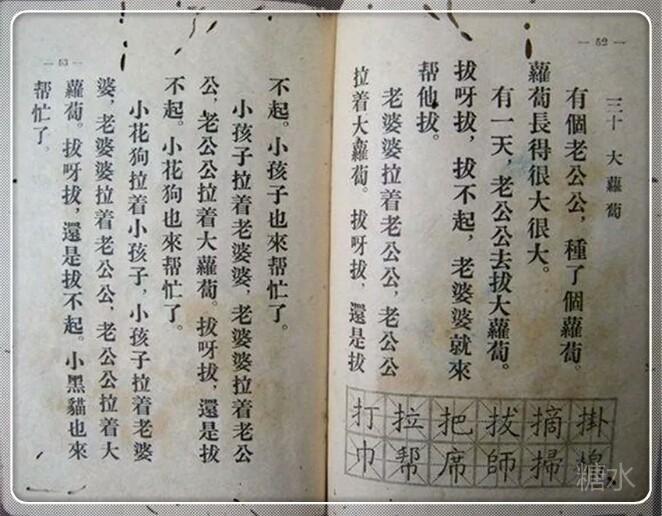 — 52 —
三十 大蘿蔔
有個老公公，種了個蘿蔔。
蘿蔔長得很大很大。
有一天，老公公去拔大蘿蔔。
拔呀拔，拔不起，老婆婆就來
帮他拔。
老婆婆拉着老公公，老公公
拉着大蘿蔔。拔呀拔，還是拔
掛摘拔把拉打
掃師席帮巾
— 53 —
不起。小孩子也來帮忙了。
小孩子拉着老婆婆，老婆婆拉着老公
公，老公公拉着大蘿蔔。拔呀拔，還是拔
不起。小花狗也來帮忙了。
小花狗拉着小孩子，小孩子拉着老婆
婆，老婆婆拉着老公公，老公公拉着大
蘿蔔。拔呀拔，還是拔不起。小黑貓也來
帮忙了。
糖水